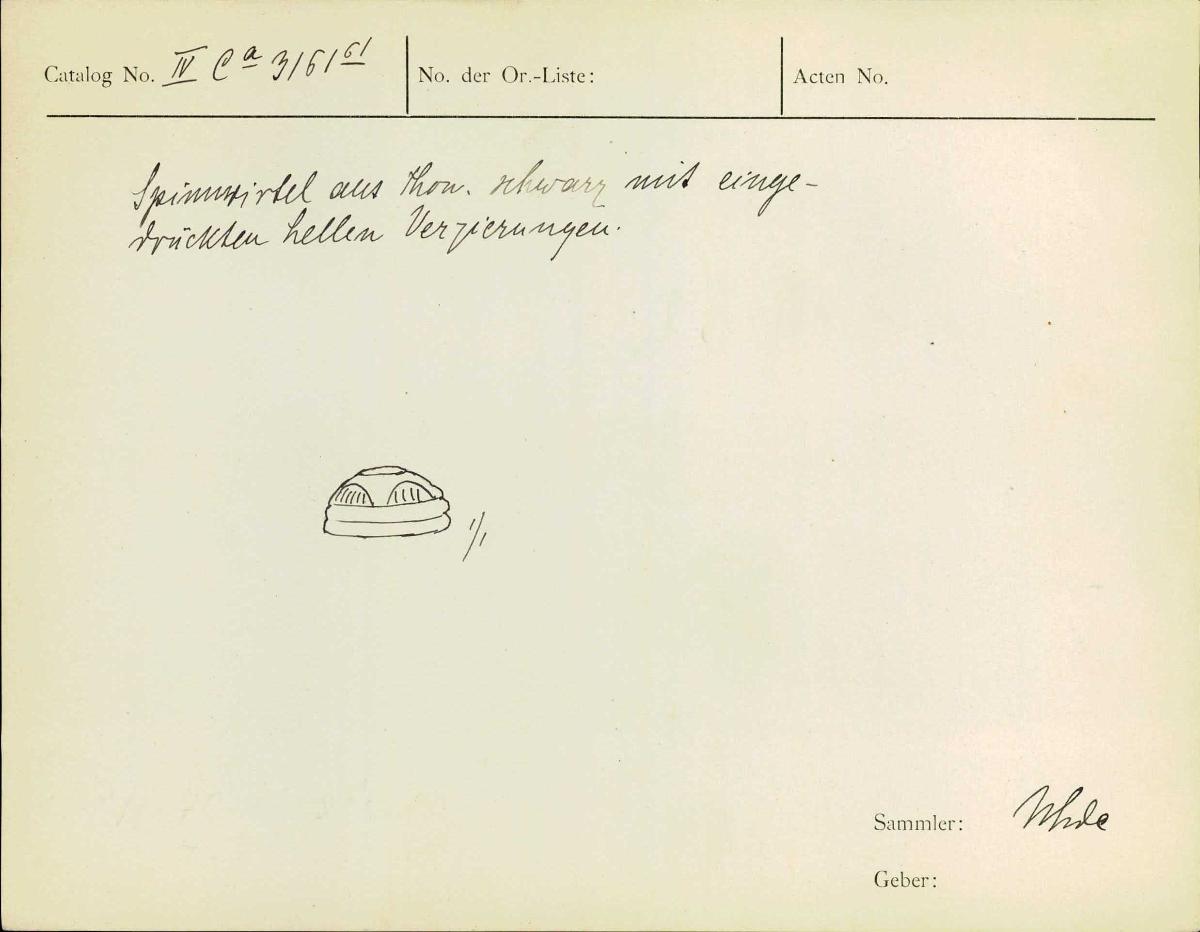 Catalog No. IV Ca 3161 61
No. der Or.-Liste:
Acten No.
Spinnwirtel aus Thon. schwarz mit einge-
drückten hellen Verzierungen.
1/1
Sammler: Uhde
Geber: